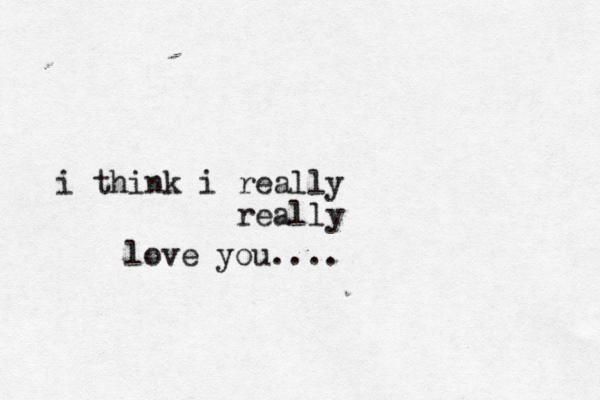 i think i really
really
love you....